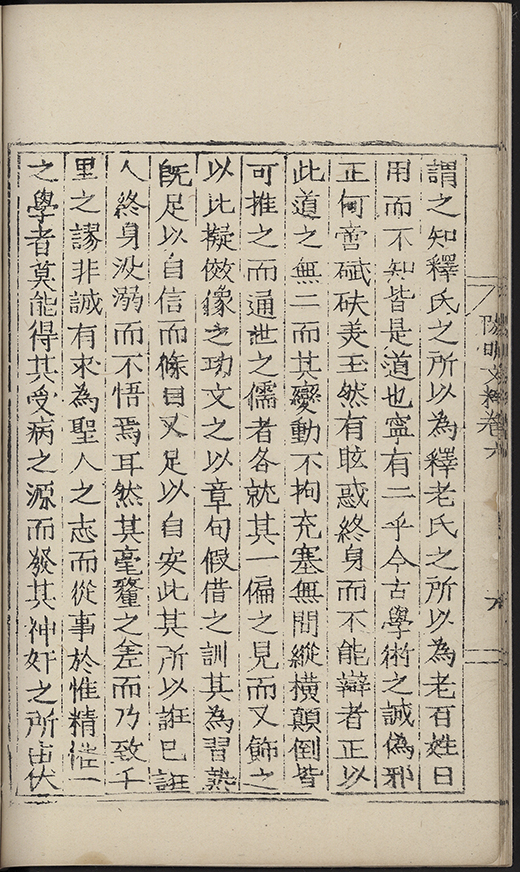 謂之知釋氏之所以為釋老氏之所以為老百姓日
用而不知皆是道也寧有二乎今古學術之誠偽邪
正何啻碔砆美玉然有眩惑終身而不能辯者正以
此道之無二而其變動不拘充塞無間縱橫顛倒皆
可推之而通世之儒者各就其一偏之見而又飾之
以比擬倣像之功文之以章句假借之訓其為習熟
既足以自信而條目又足以自安此其所以誑己誑
人終身没溺而不悟焉耳然其毫釐之差而乃致千
里之謬非誠有求為聖人之志而從事於惟精惟一
之學者莫能得其受病之源而發其神奸之所由伏
陽明文粹卷六